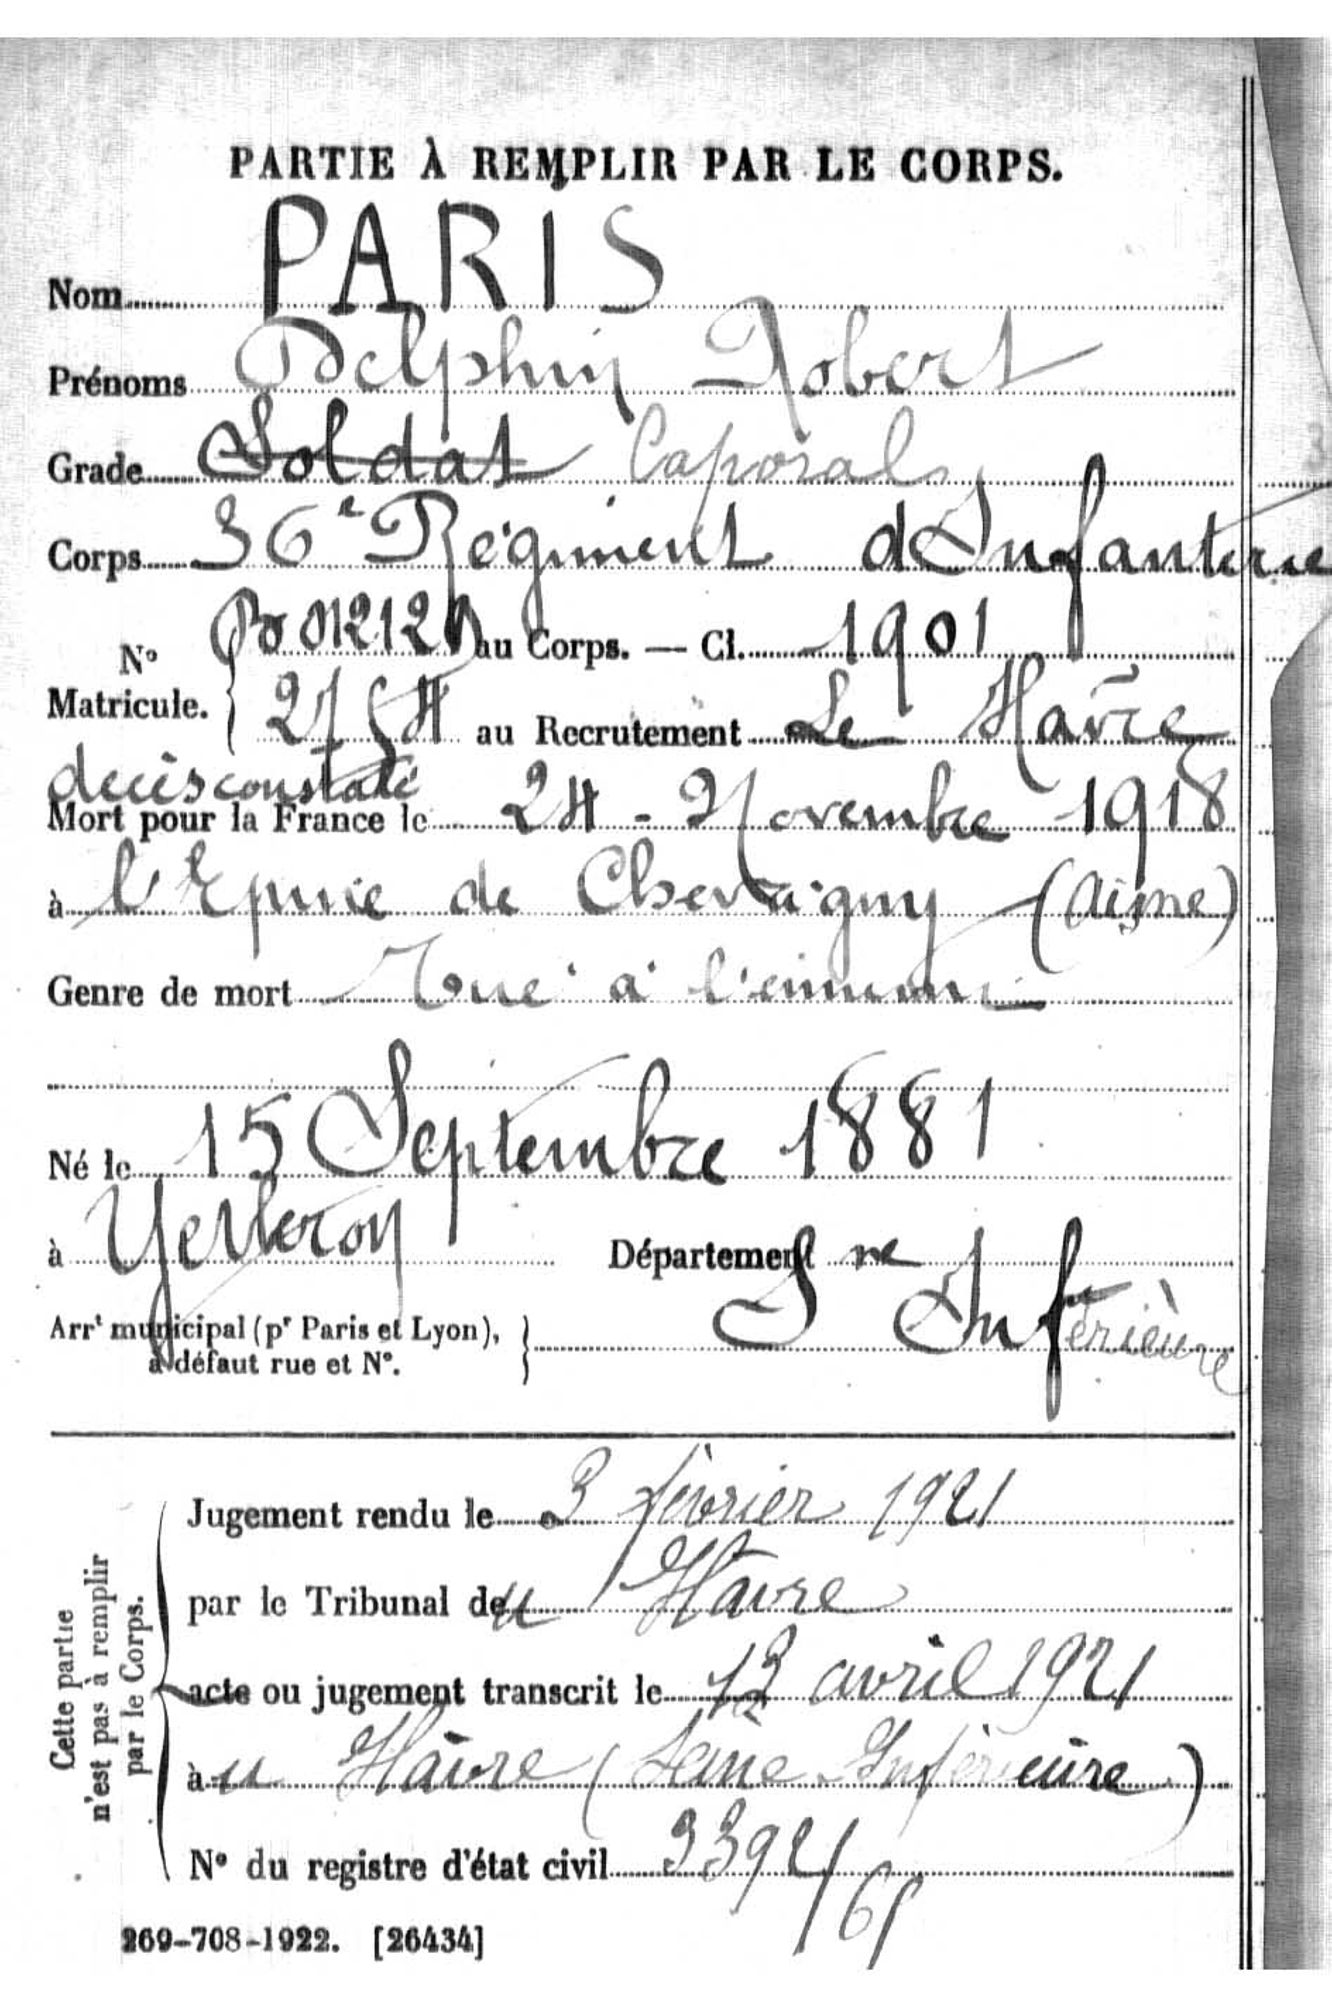 PARTIE À REMPLIR PAR LE CORPS.
Nom PARIS
Prénoms Delphin Robert
Grade Soldat Caporal
Corps 36e Régiment d'Infanterie
N° Matricule. 012120 au Corps. — Cl. 1901
au Recrutement Le Havre
décès constaté
Mort pour la France le 24 - Novembre 1918
à l'Epine de Chevrigny (Aisne)
Genre de mort Tué à l'ennemi
Né le 15 Septembre 1881
à Yerville Département Sne Inférieure
Arrt municipal (pr Paris et Lyon),
à défaut rue et N°.
Cette partie
n'est pas à remplir
par le Corps.
Jugement rendu le 3 février 1921
par le Tribunal du Havre
acte ou jugement transcrit le 13 avril 1921
au Hâvre (Seine Inférieure)
N° du registre d'état civil
269-708-1922. [26434]